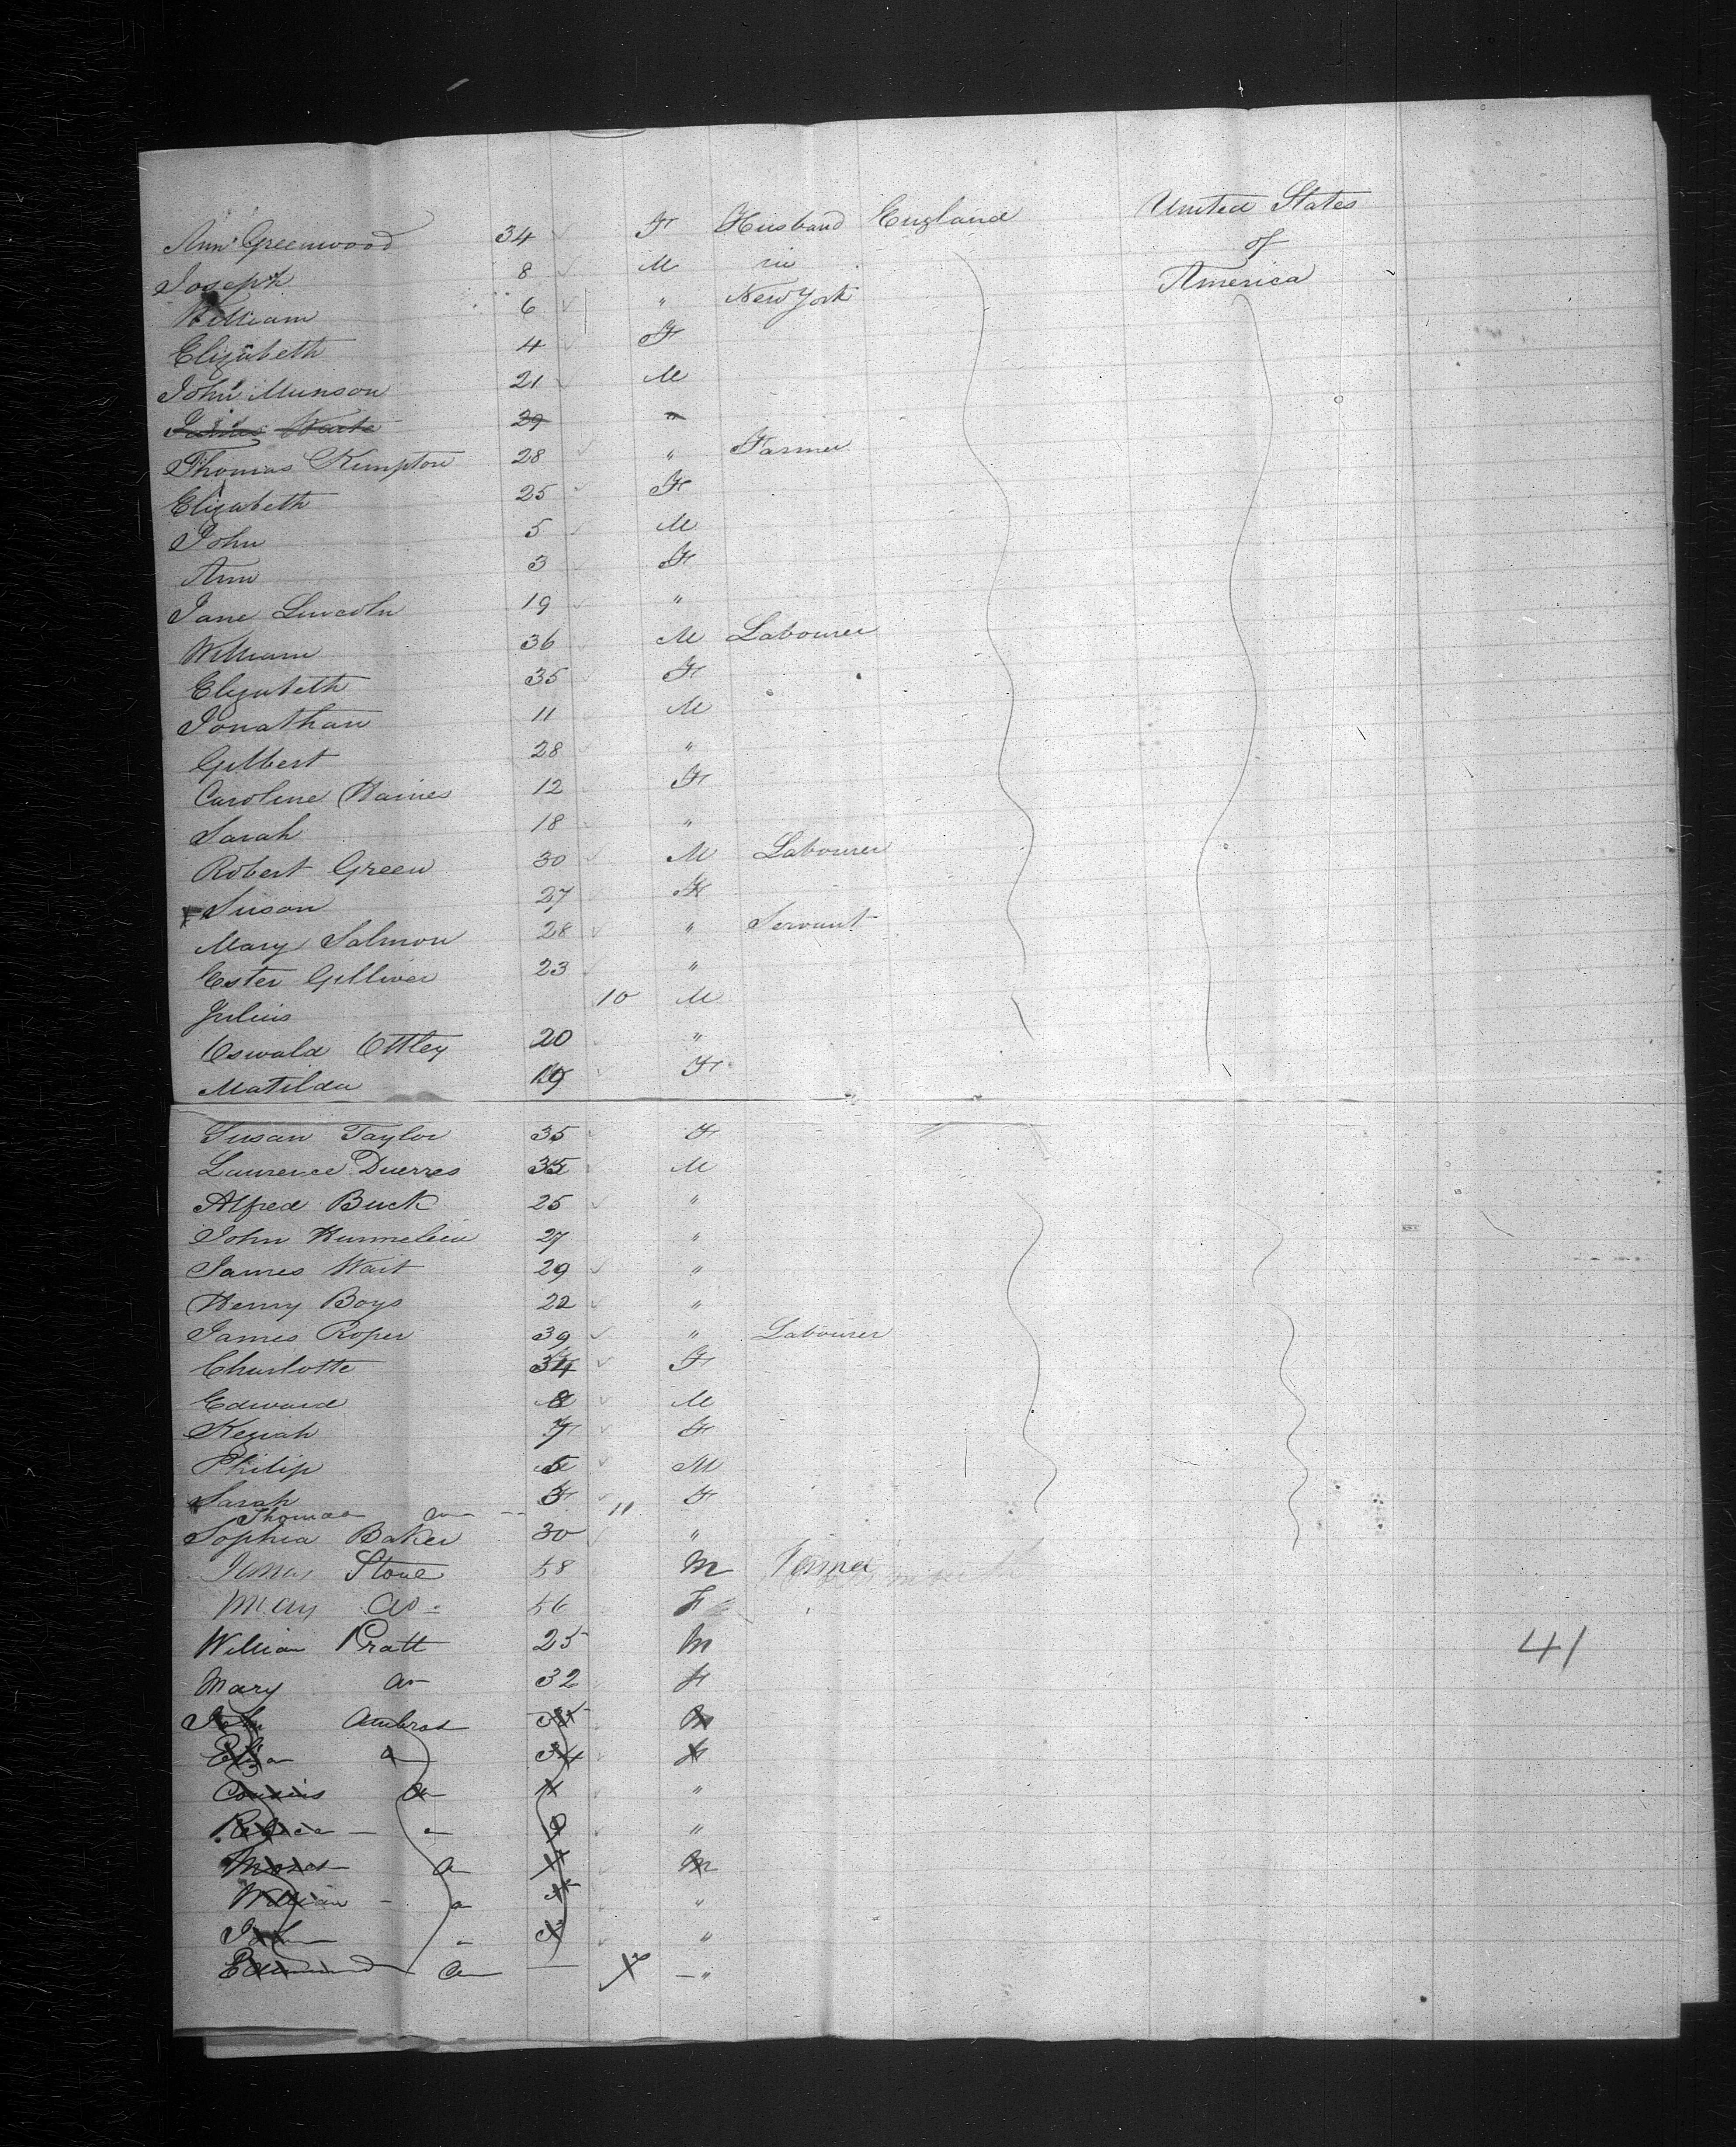 Ann Greenwood 34 F Husband England United States
Joseph 8 M in of
William 6 " New York America
Elizabeth 4 F
John Munson 21 M
29 "
Thomas Kimpton 28 " Farmer
Elizabeth 25 F
John 5 M
Ann 3 F
Jane Lincoln 19 "
William 36 M Labourer
Elizabeth 35 F
Jonathan 11 M
Gilbert 28 "
Caroline Haines 12 F
Sarah 18 "
Robert Green 30 M Labourer
Susan 27 F
Mary Salmon 28 " Servant
Ester Gulliver 23 "
Julius 10 M
Oswald Ottley 20 "
Matilda 19 F
Susan Taylor 35 F
Laurence Duerres 35 M
Alfred Buck 25 "
John 27 "
James Wait 29 "
Henry Boys 22 "
James Roper 39 " Labourer
Charlotte 34 F
Edward 8 M
Keziah 7 F
Philip 5 M
Sarah 3 F
Thomas do -- 11
Sophia Baker 30 "
James Stone 58 M Farmer
Mary do - 56 F
William Pratt 25 M
41
Mary do 32 F
John Ambros M
Eliza do 34 F
Cousins do "
Rebecca - "
Moses do M
William - do "
John "
Edmund do — "